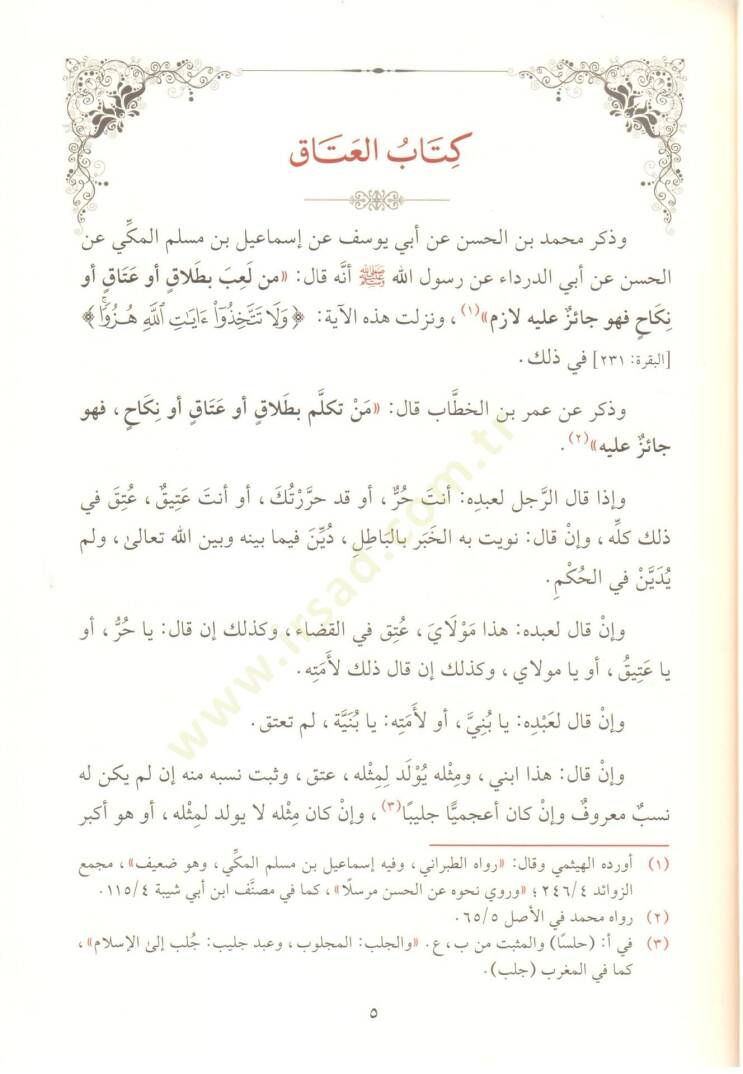 كِتَابُ العَتَاق
وذكر محمد بن الحسن عن أبي يوسف عن إسماعيل بن مسلم المكِّي عن
الحسن عن أبي الدرداء عن رسول الله ﷺ أنَّه قال: «من لَعِبَ بطَلاقٍ أو عَتَاقٍ أو
نِكَاحٍ فهو جائزٌ عليه لازم»(١)، ونزلت هذه الآية: ﴿وَلَا تَتَّخِذُوٓاْ ءَايَٰتِ ٱللَّهِ هُزُوٗاۚ﴾
[البقرة: ٢٣١] في ذلك.
وذكر عن عمر بن الخطَّاب قال: «مَنْ تكلَّم بطَلاقٍ أو عَتَاقٍ أو نِكَاحٍ، فهو
جائزٌ عليه»(٢).
وإذا قال الرَّجل لعبدِه: أنتَ حُرٌّ، أو قد حرَّرْتُكَ، أو أنتَ عَتِيقٌ، عُتِقَ في
ذلك كلِّه، وإنْ قال: نويت به الخَبَر بالبَاطِلِ، دُيِّنَ فيما بينه وبين الله تعالىٰ، ولم
يُدَيَّنْ في الحُكْمِ.
وإنْ قال لعبده: هذا مَوْلَايَ، عُتِق في القضاء، وكذلك إن قال: يا حُرُّ، أو
يا عَتِيقُ، أو يا مولاي، وكذلك إن قال ذلك لأَمَتِه.
وإنْ قال لعَبْدِه: يا بُنِيَّ، أو لأَمَتِه: يا بُنَيَّة، لم تعتق.
وإنْ قال: هذا ابني، ومِثْله يُوْلَد لِمِثْله، عتق، وثبت نسبه منه إن لم يكن له
نسبٌ معروفٌ وإنْ كان أعجميًّا جليبًا(٣)، وإنْ كان مِثْله لا يولد لمِثْله، أو هو أكبر
(١) أورده الهيثمي وقال: «رواه الطبراني، وفيه إسماعيل بن مسلم المكِّي، وهو ضعيف»، مجمع
الزوائد ٢٤٦/٤؛ «وروي نحوه عن الحسن مرسلًا»، كما في مصنَّف ابن أبي شيبة ١١٥/٤.
(٢) رواه محمد في الأصل ٦٥/٥.
(٣) في أ: (حلسًا) والمثبت من ب، ع. «والجلب: المجلوب، وعبد جليب: جُلب إلىٰ الإسلام»،
كما في المغرب (جلب).
٥
www.irsad.com.tr